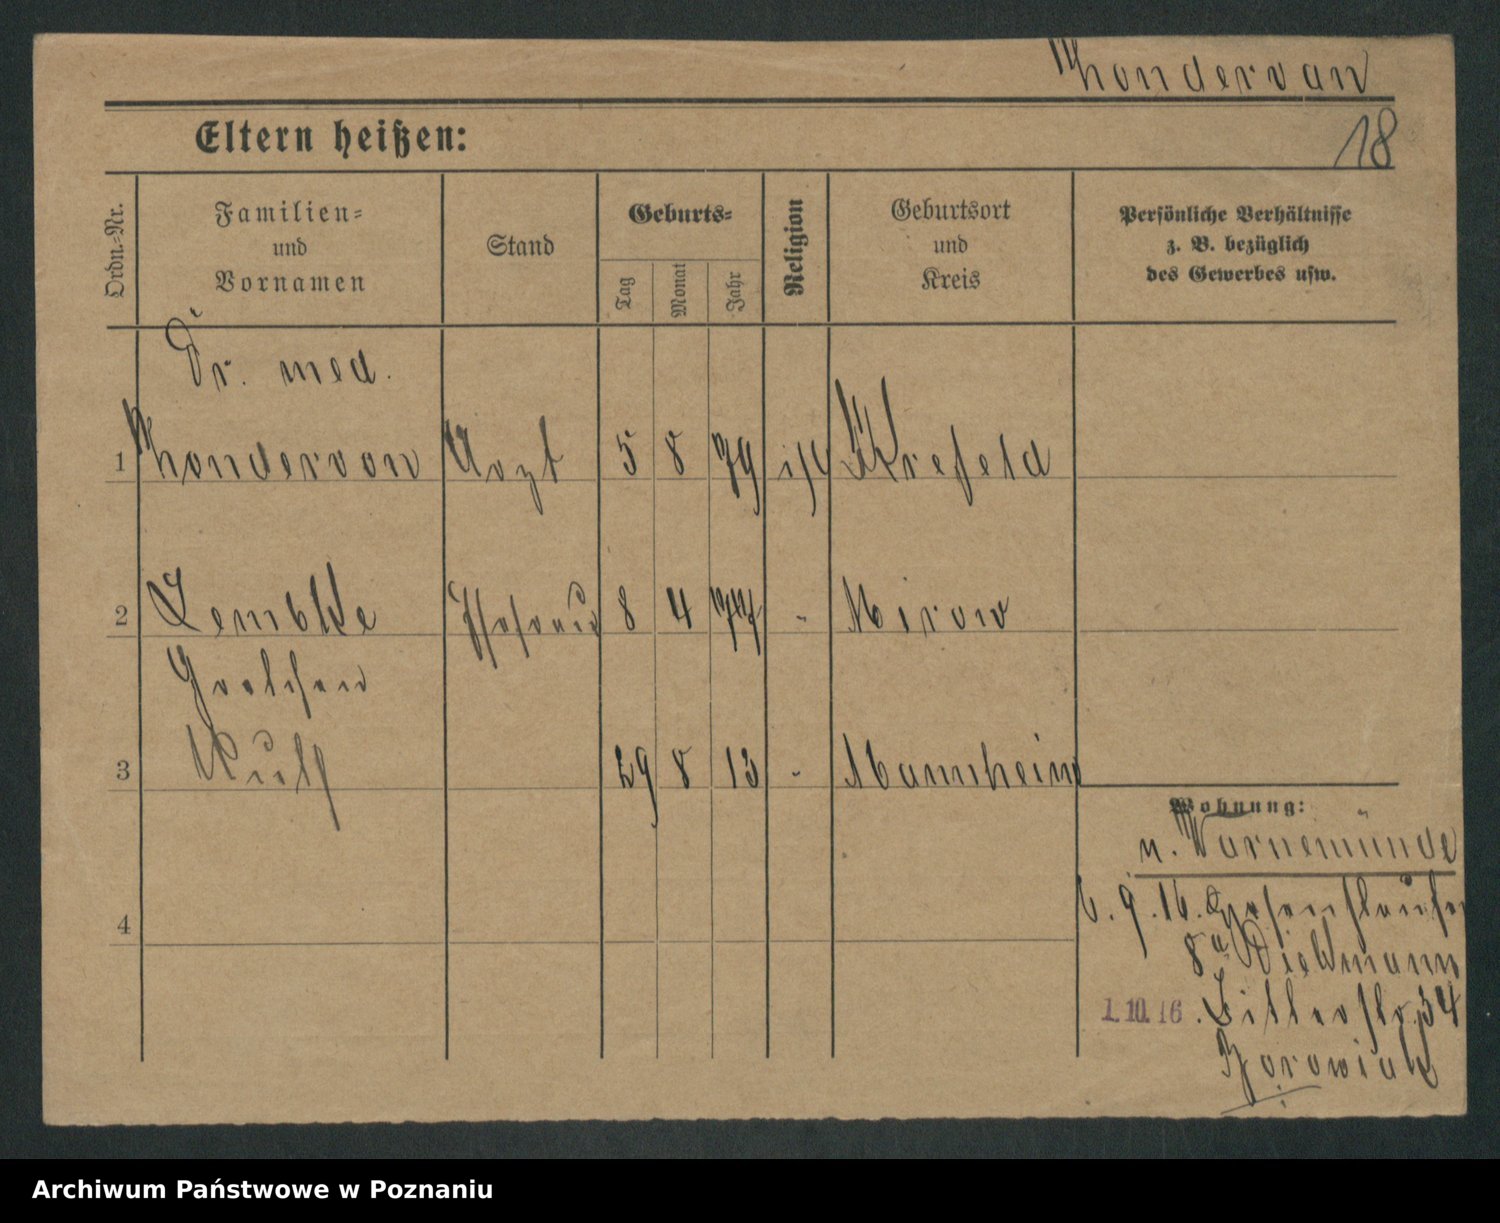 Zondervan
18
Eltern heißen:
Ordn.-Nr.
Familien- und Vornamen
Stand
Geburts-
Tag
Monat
Jahr
Religion
Geburtsort und Kreis
Persönliche Verhältnisse z. B. bezüglich des Gewerbes usw.
Dr. med.
1 Zondervan Arzt 5 8 79 isr Krefeld
2 Lembke Ehefrau 8 4 77 - Mirow
Gretchen
3 Ruth 29 8 13 - Mannheim
Wohnung:
n. Warnemünde
9.16.
8 a
1.10.16. Ritterstr. 34
Borowiak
4
Archiwum Państwowe w Poznaniu